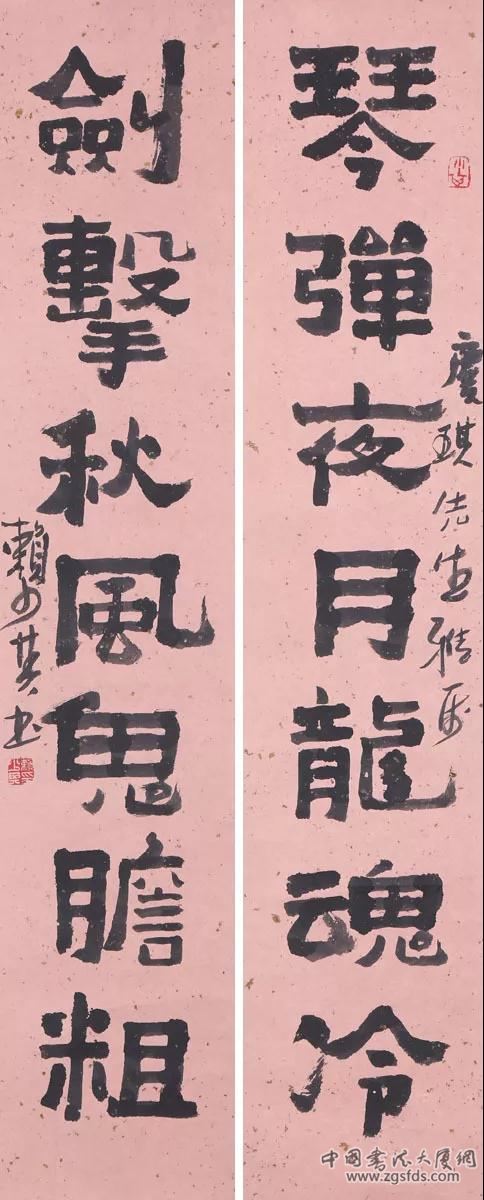 慶琪先生雅屬
琴彈夜月龍魂冷
劍擊秋風鬼膽粗
賴少其書
中國書法大廈網
www.zgsfds.com